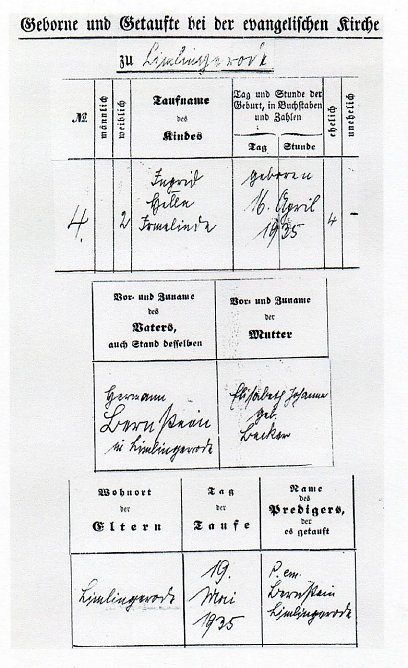 Geborne und Getaufte bei der evangelischen Kirche
zu Limlingerode
№
männlich
weiblich
Taufname
des
Kindes
Tag und Stunde der
Geburt, in Buchstaben
und Zahlen
Tag
Stunde
ehelich
unehelich
4.
2
Ingrid
Helle
Irmelinde
geboren
16. April
1935
4
-
Vor- und Zuname
des
Vaters,
auch Stand desselben
Vor- und Zuname
der
Mutter
Hermann
Bernstein
in Limlingerode
Elisabeth Johanne
geb.
Becker
Wohnort
der
Eltern
Tag
der
Taufe
Name
des
Predigers,
der
es getauft
Limlingerode
19.
Mai
1935
P. em.
Bernstein
Limlingerode